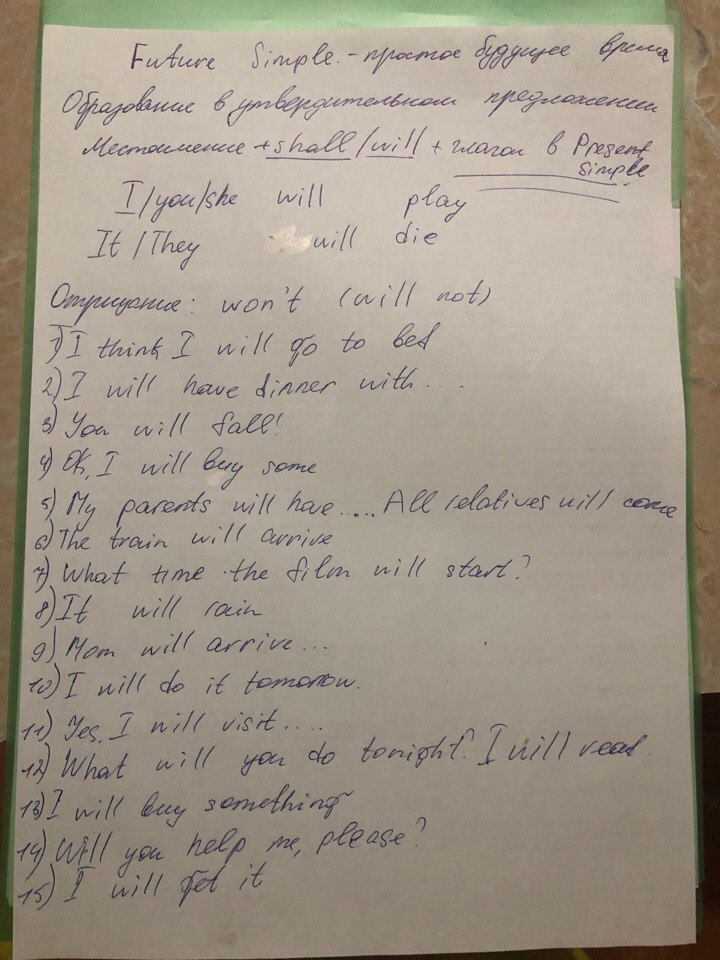 Future Simple. - простое будущее время
Образование в утвердительном предложении
Местоимение + shall / will + глагол в Present
Simple
I/you/she will play
It / They will die
Отрицание: won't (will not)
1) I think I will go to bed
2) I will have dinner with....
3) You will fall!
4) Ok, I will buy some
5) My parents will have..... All relatives will come
6) The train will arrive
7) What time the film will start?
8) It will rain
9) Mom will arrive...
10) I will do it tomorrow.
11) Yes, I will visit....
12) What will you do tonight? I will read..
13) I will buy something
14) Will you help me, please?
15) I will get it